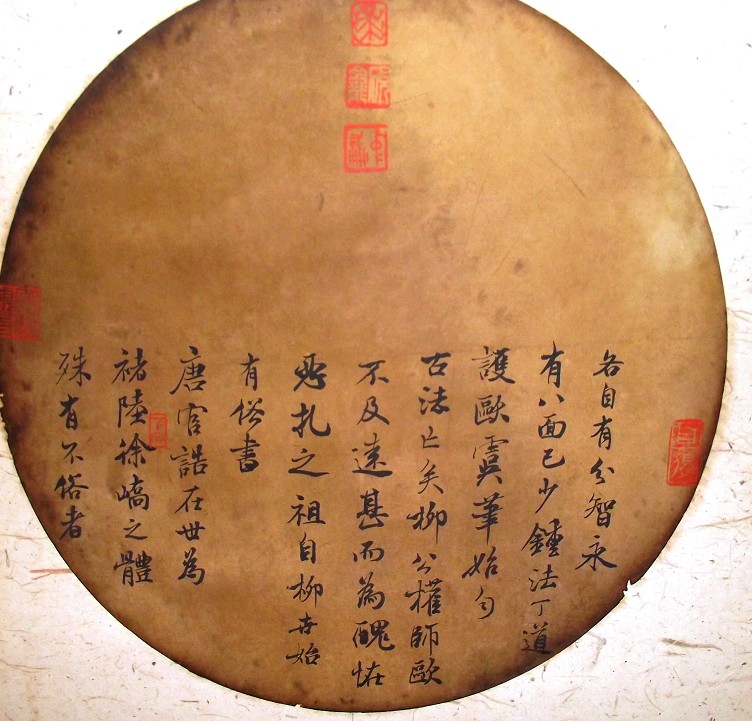 各自有分智永
有八面已少鍾法丁道
護歐虞筆始勻
古法亡矣柳公權師歐
不及遠甚而為醜恠
惡扎之祖自柳世始
有俗書
唐官誥在世為
褚陸徐嶠之體
殊有不俗者